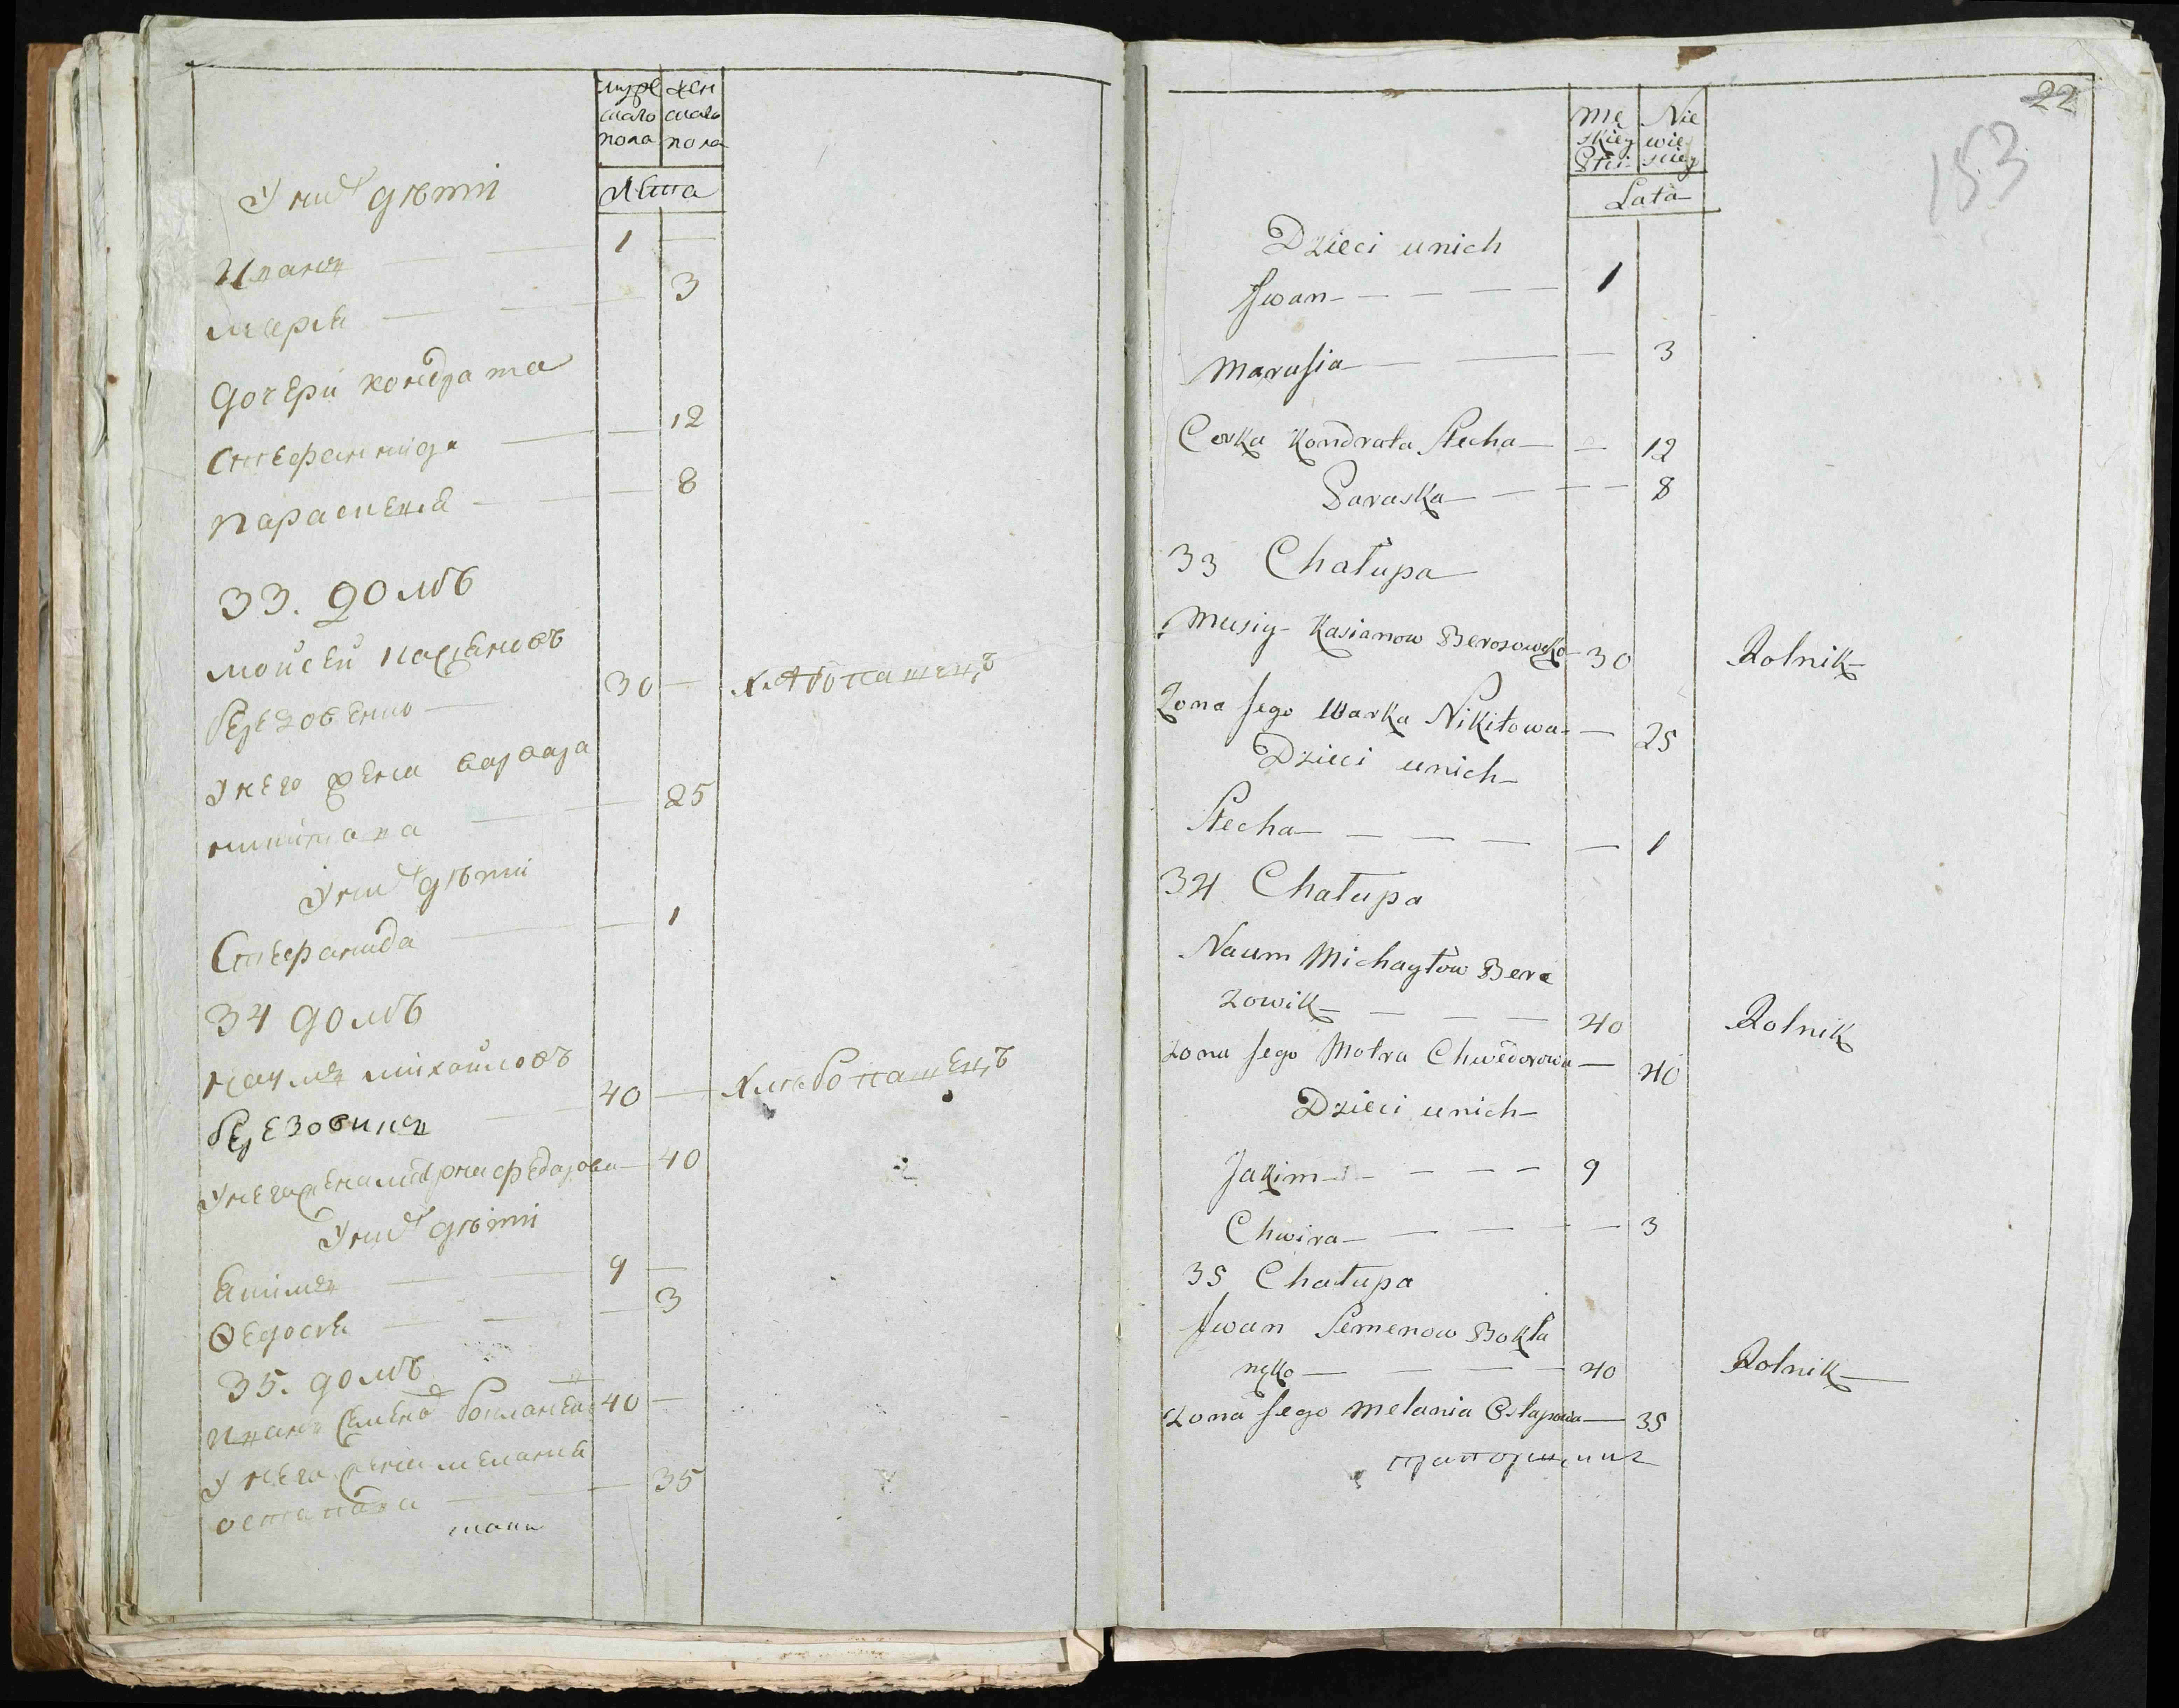 муже жен
скаго скаго
пола пола
Лѣта
У них дѣти
Иванъ — — 1 —
Марья — — 3
дочери кондрата
Стефанида — — 12
Параскевья — — 8
33. домъ
мойсей касьяновъ
березовенко — 30 — хлѣбопашецъ
У него жена варвара
никитова — — 25
У них дѣти
Стефанида — — 1
34 домъ
наумъ михайловъ
березовикъ — 40 — хлѣбопашецъ
У него жена матрона федорова — 40
У них дѣти
Якимъ — 9 —
Ѳедосья — — 3
35. домъ
Иванъ Семеновъ 40 —
У него жена меланья
остапова — — 35
22
153
Mę Nie
skiey wie
Płci sciey
Lata
Dzieci unich
Jwan — — — — 1
Marusia — — — 3
Corka Kondrata Stecha — — 12
Paraska — — — 8
33 Chałupa
Musiy Kasianow Berozowsko 30 Rolnik
Zona Jego Warka Nikitowa — 25
Dzieci unich
Stecha — — — — — 1
34 Chałupa
Naum Michayłow Bere
zowik — — — 40 Rolnik
Zona Jego Motra Chwedorowa — 40
Dzieci unich
Jakim — — — — 9
Chwira — — — — — 3
35 Chałupa
Jwan Semenow Bokła
nko — — — — 40 Rolnik
Zona Jego Melania Ostapowa — 35
прапорщикъ